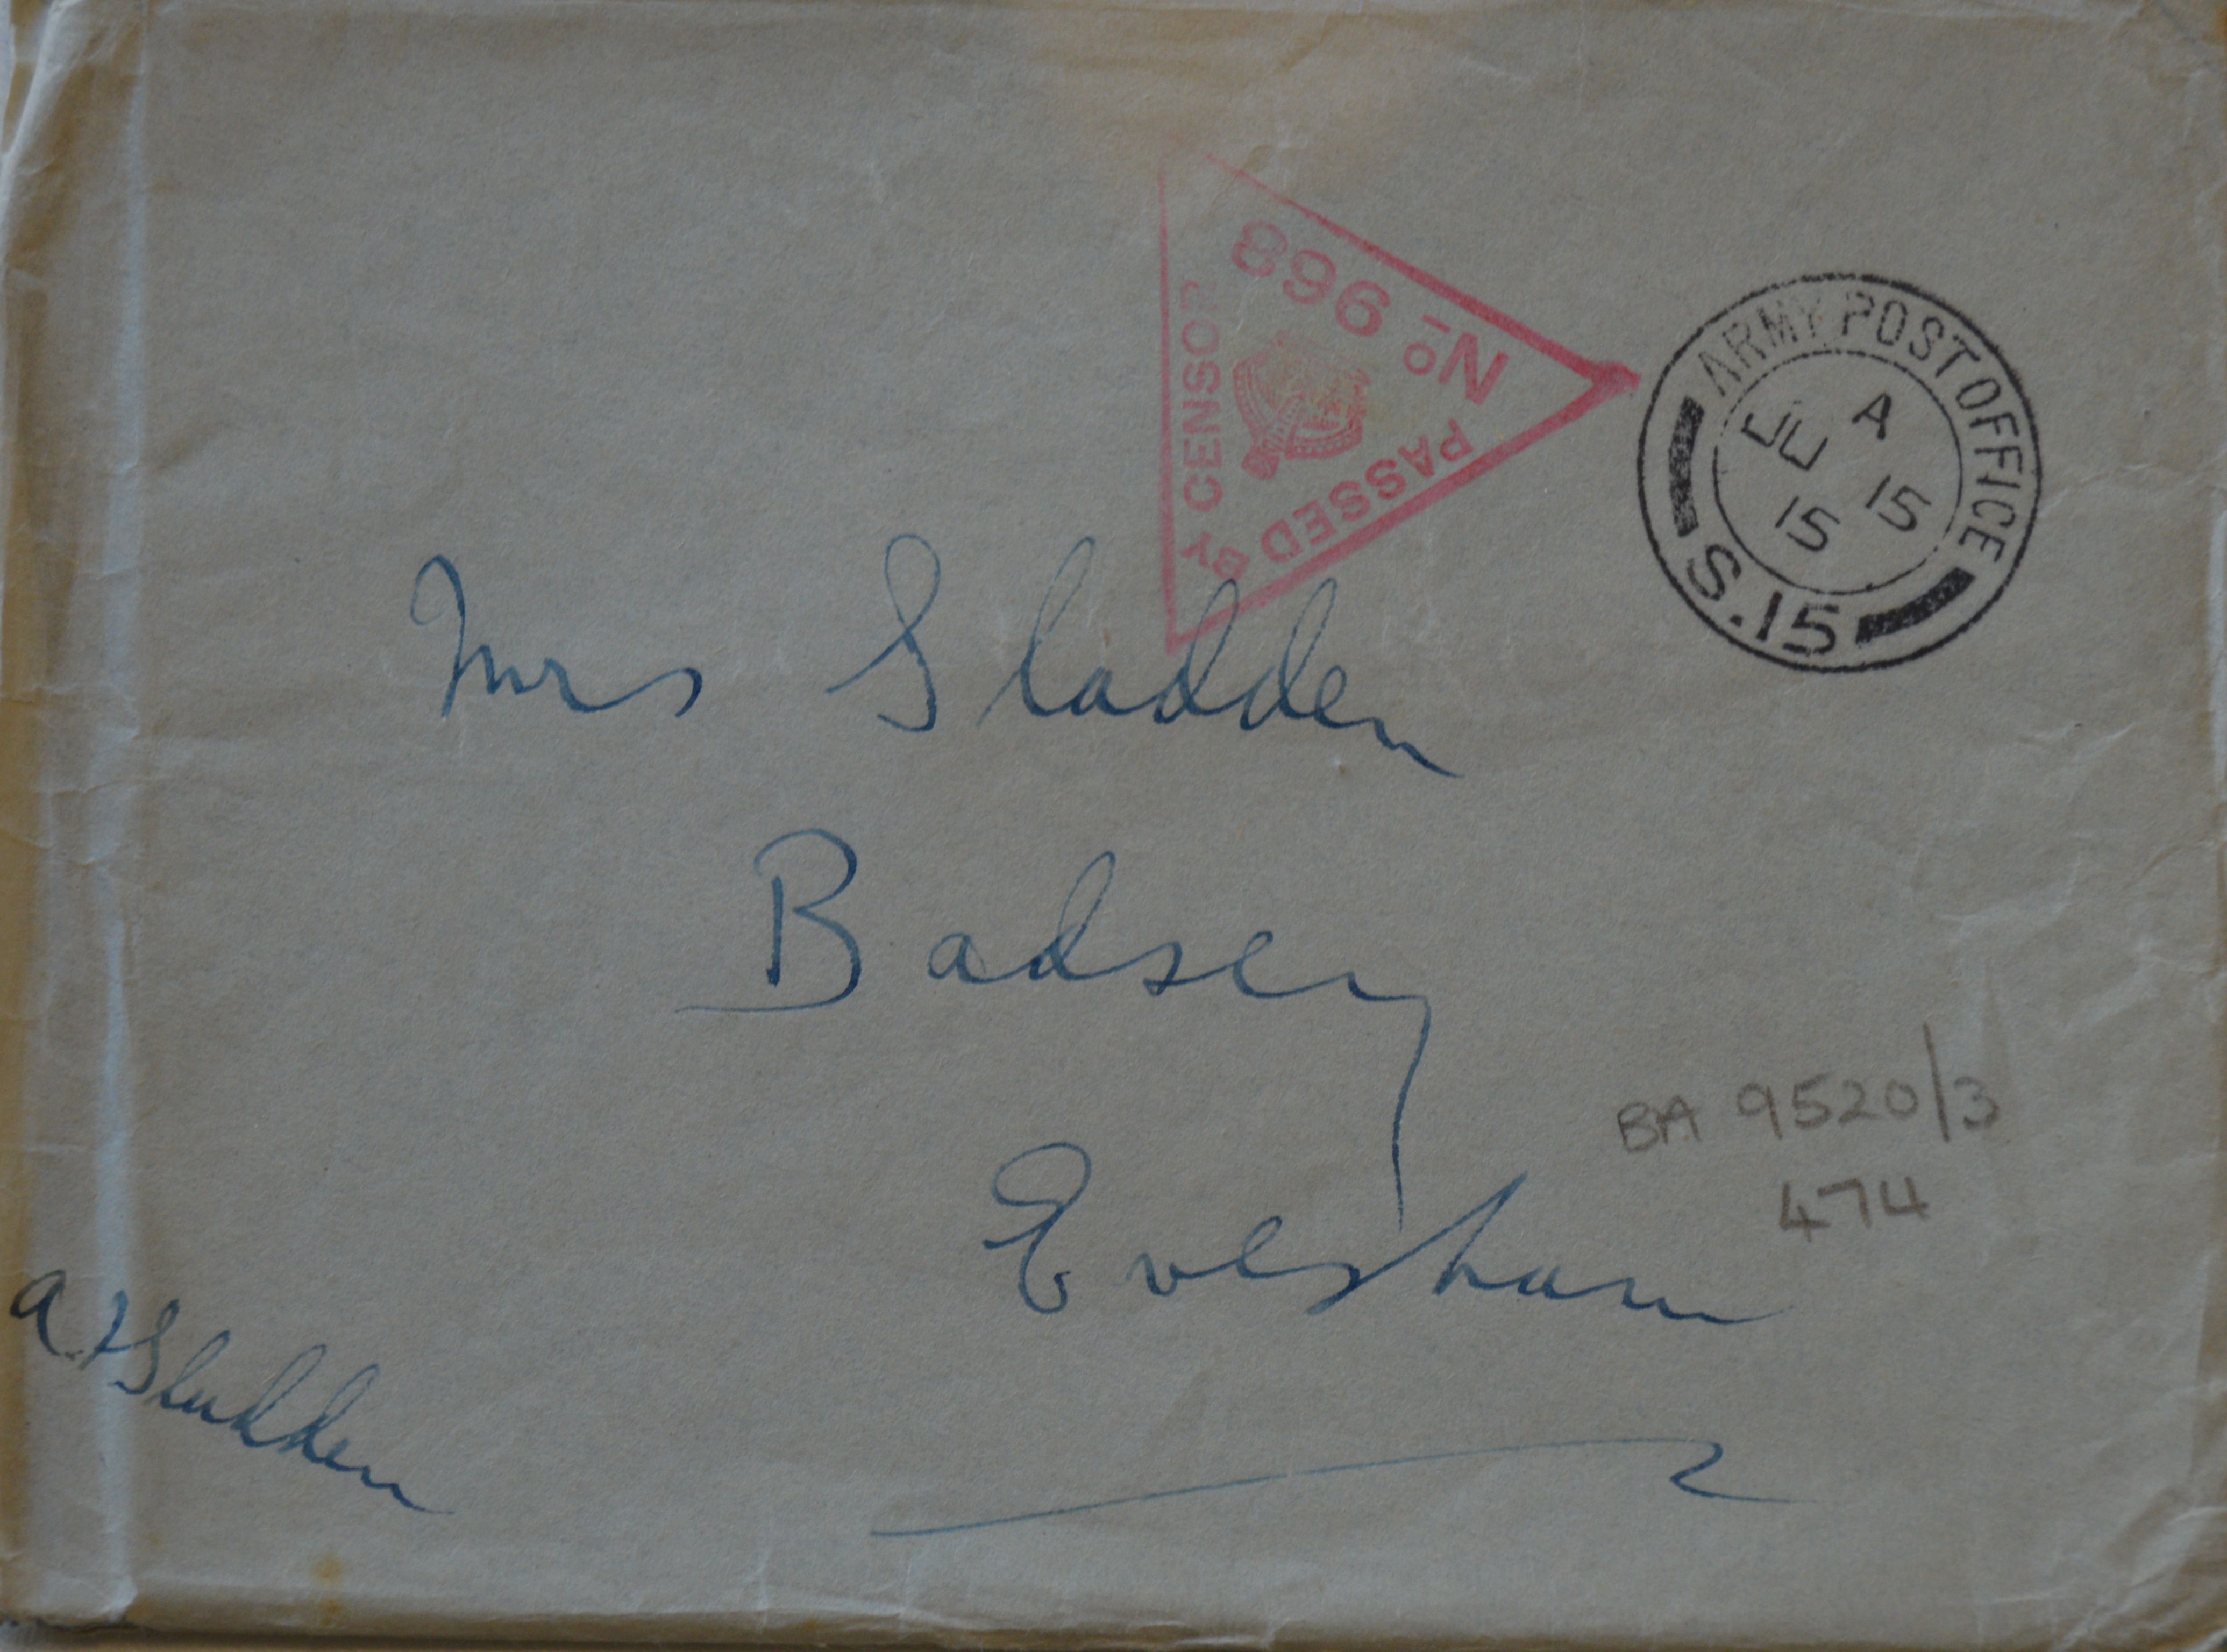 PASSED BY CENSOR
No 968
ARMY POST OFFICE
A
JU 15
15
S.15
Mrs Sladden
Badsey
Evesham
BA 9520/3
474
A F Sladden